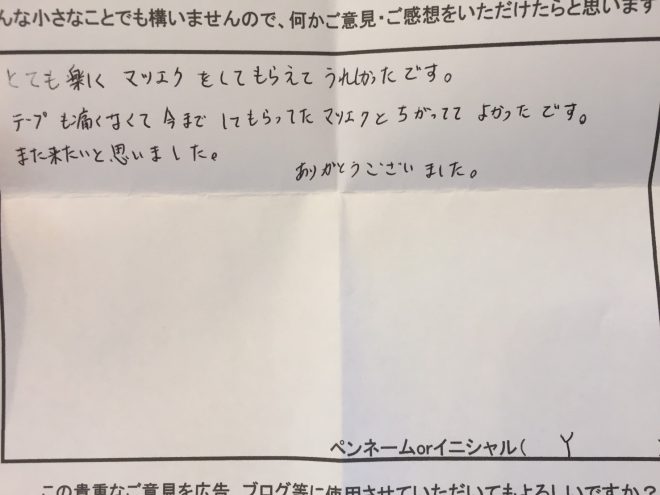 んな小さなことでも構いませんので、何かご意見・ご感想をいただけたらと思います
とても楽しく マツエク をしてもらえて うれしかったです。
テープ も痛くなくて 今まで してもらってた マツエクと ちがってて よかったです。
また来たいと思いました。
ありがとうございました。
ペンネームorイニシャル( Y
この貴重なご意見を広告、ブログ等に使用させていただいてもよろしいですか?